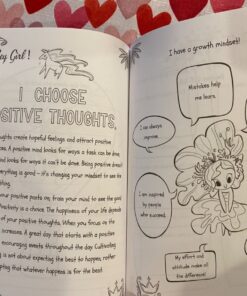 ey Girl!
I CHOOSE
POSITIVE THOUGHTS.
oughts create hopeful feelings and attract positive
A positive mind looks for ways a task can be done,
ind looks for ways it can't be done. Being positive doesn't
verything is good - it's changing your mindset to see the
your positive posts on, train your mind to see the good
ositivity is a choice. The happiness of your life depends
of your positive thoughts. When you focus on the
increases. A great day that starts with a positive
encouraging events throughout the day. Cultivating
g is not about expecting the best to happen, rather
pting that whatever happens is for the best.
I have a growth mindset!
Mistakes help
me learn.
I can always
improve.
I am inspired
by people
who succeed.
My effort and
attitude make all
the difference!